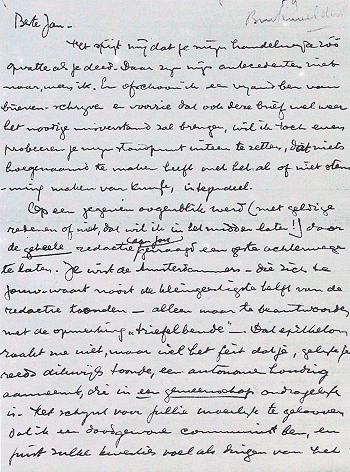 Beste Jan -
Het spijt mij dat je mijn handelwijze zóó
opvatte als je deed. Daar zijn mijn antecedenten niet
naar, meen ik. En ofschoon ik een vijand ben van
brieven-schrijven en voorzie dat ook deze brief wel weer
het noodige misverstand zal brengen, wil ik toch even
probeeren je mijn standpunt uiteen te zetten, dat niets
hoegenaamd te maken heeft met het al of niet stem-
ming maken van kunst, integendeel.
Op een gegeven oogenblik werd (met geldige
redenen of niet, dat wil ik in het midden laten!) door
de geheele redactie gevraagd een opstel achterwege
te laten. Je wist de Amsterdammers - die zich te
jouw-waart nooit de kleingeestigste helft van de
redactie toonden - alleen maar te beantwoorden
met de opmerking "triefelbende". Dat epitheton
raakt me niet, maar wel het feit dat je, gelijk je
reeds dikwijls toonde, een autonome houding
aanneemt, die in een gemeenschap ondragelijk
is. Het schijnt voor jullie moeilijk te gelooven
dat ik een doodgewone communist ben, en
juist zulke kwesties voel als dingen van het